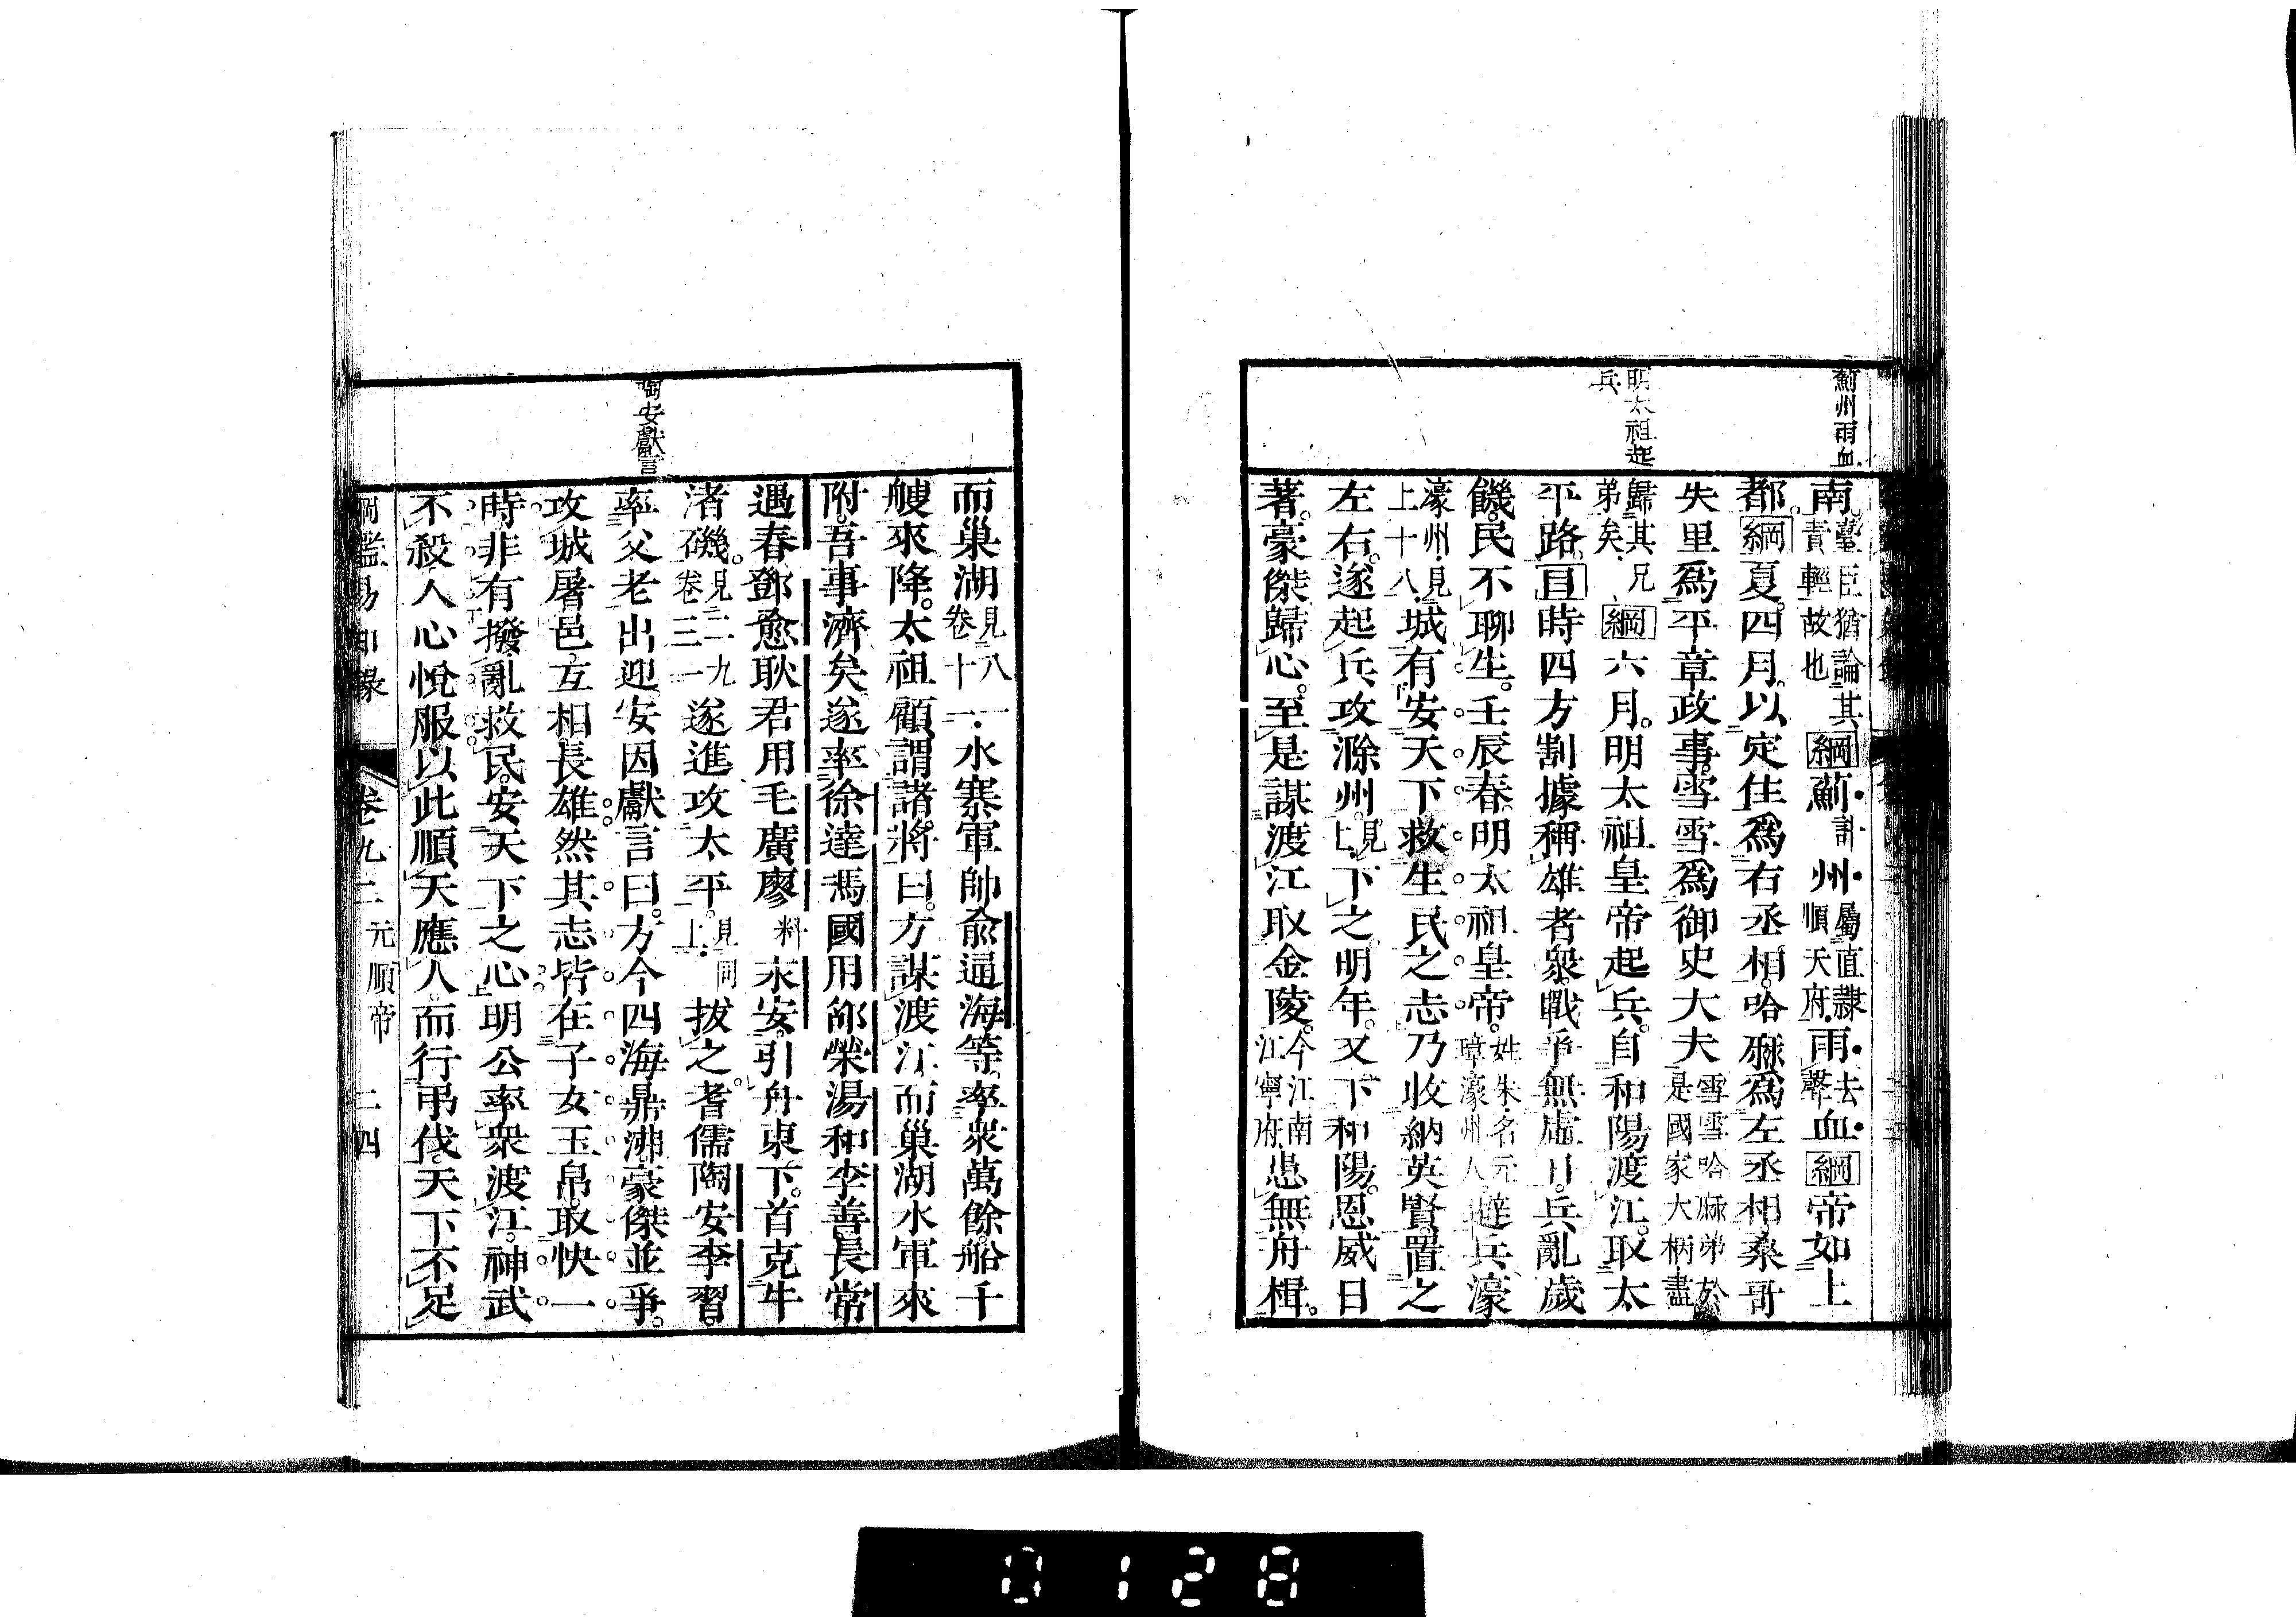 薊州雨血
明太祖起
兵
南。臺臣猶論其責輕故也綱薊計州屬直隷順天府雨去聲血綱帝如上
都。綱夏四月。以定住爲右丞相。哈麻爲左丞相。桑哥
失里爲平章政事。雪雪爲御史大夫雪雪哈麻弟於是國家大柄盡
歸其兄弟矣綱六月。明太祖皇帝起兵。自和陽渡江。取太
平路。目時四方割據稱雄者衆。戰爭無虛日。兵亂歲
饑。民不聊生。壬辰春。明太祖皇帝。姓朱名元璋濠州人避兵濠
濠州見上十八城有安天下救生民之志乃收納英賢。置之
左右。遂起兵攻滁州。見上下之明年。又下和陽。恩威日
著。豪傑歸心。至是謀渡江取金陵。今江南江寧府患無舟楫。
陶安獻言
而巢湖見八卷十一水寨軍帥俞通海等。率衆萬餘。船千
艘來降。太祖顧謂諸將曰。方謀渡江。而巢湖水軍來
附。吾事濟矣遂率徐達馮國用邵榮湯和李善長常
遇春鄧愈耿君用毛廣廖料永安。引舟東下。首克牛
渚磯。見二九卷三一遂進攻太平。見同上拔之。耆儒陶安李習。
率父老出迎安因獻言曰。方今四海鼎沸豪傑並爭。
攻城屠邑。互相長雄然其志皆在子女玉帛。取快一
時。非有撥亂救民。安天下之心明公率衆渡江。神武
不殺。人心悅服以此順天應人而行弔伐。天下不足
綱鑑易知錄 卷九二 元順帝 二四
0128